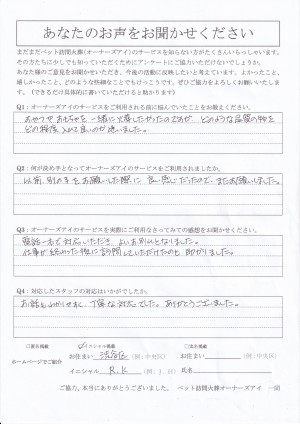 あなたのお声をお聞かせください
まだまだペット訪問火葬(オーナーズアイ)のサービスを知らない方がたくさんいらっしゃいます。
その方たちに少しでも知っていただくためにアンケートにご協力いただけないでしょうか。
あなた様のご意見をお聞かせいただき、今後の活動に反映したいと考えています。よかったこと、
嬉しかったこと、どのような些細なことでもけっこうです。ぜひご協力をよろしくお願いいたします。
(できるだけ具体的に書いていただけると助かります)
Q1:オーナーズアイのサービスをご利用される前に悩んでいたことをお教えください。
おやつやおもちゃを一緒に火葬したかったのですが、どのような品質の物を
どの程度入れて良いのか迷いました。
Q2:何が決め手となってオーナーズアイのサービスをご利用されましたか。
以前、別の子をお願いした際に良い感じだったので、またお願いしました。
Q3:オーナーズアイのサービスを実際にご利用なさってみての感想をお聞かせください。
電話一本で対応いただき、よいお別れとなりました。
仕事が終わった後に訪問していただけたのも助かりました。
Q4:対応したスタッフの対応はいかがでしたか。
お話もわかりやすく、丁寧な対応でした。ありがとうございました。
□匿名掲載
イニシャル掲載
□実名掲載
ホームページでご紹介
お住まい 渋谷区 (例:中央区)
お住まい (例:中央区)
イニシャル R.K (例:J.H)
氏名
ご協力、本当にありがとうございました。 ペット訪問火葬オーナーズアイ 一同